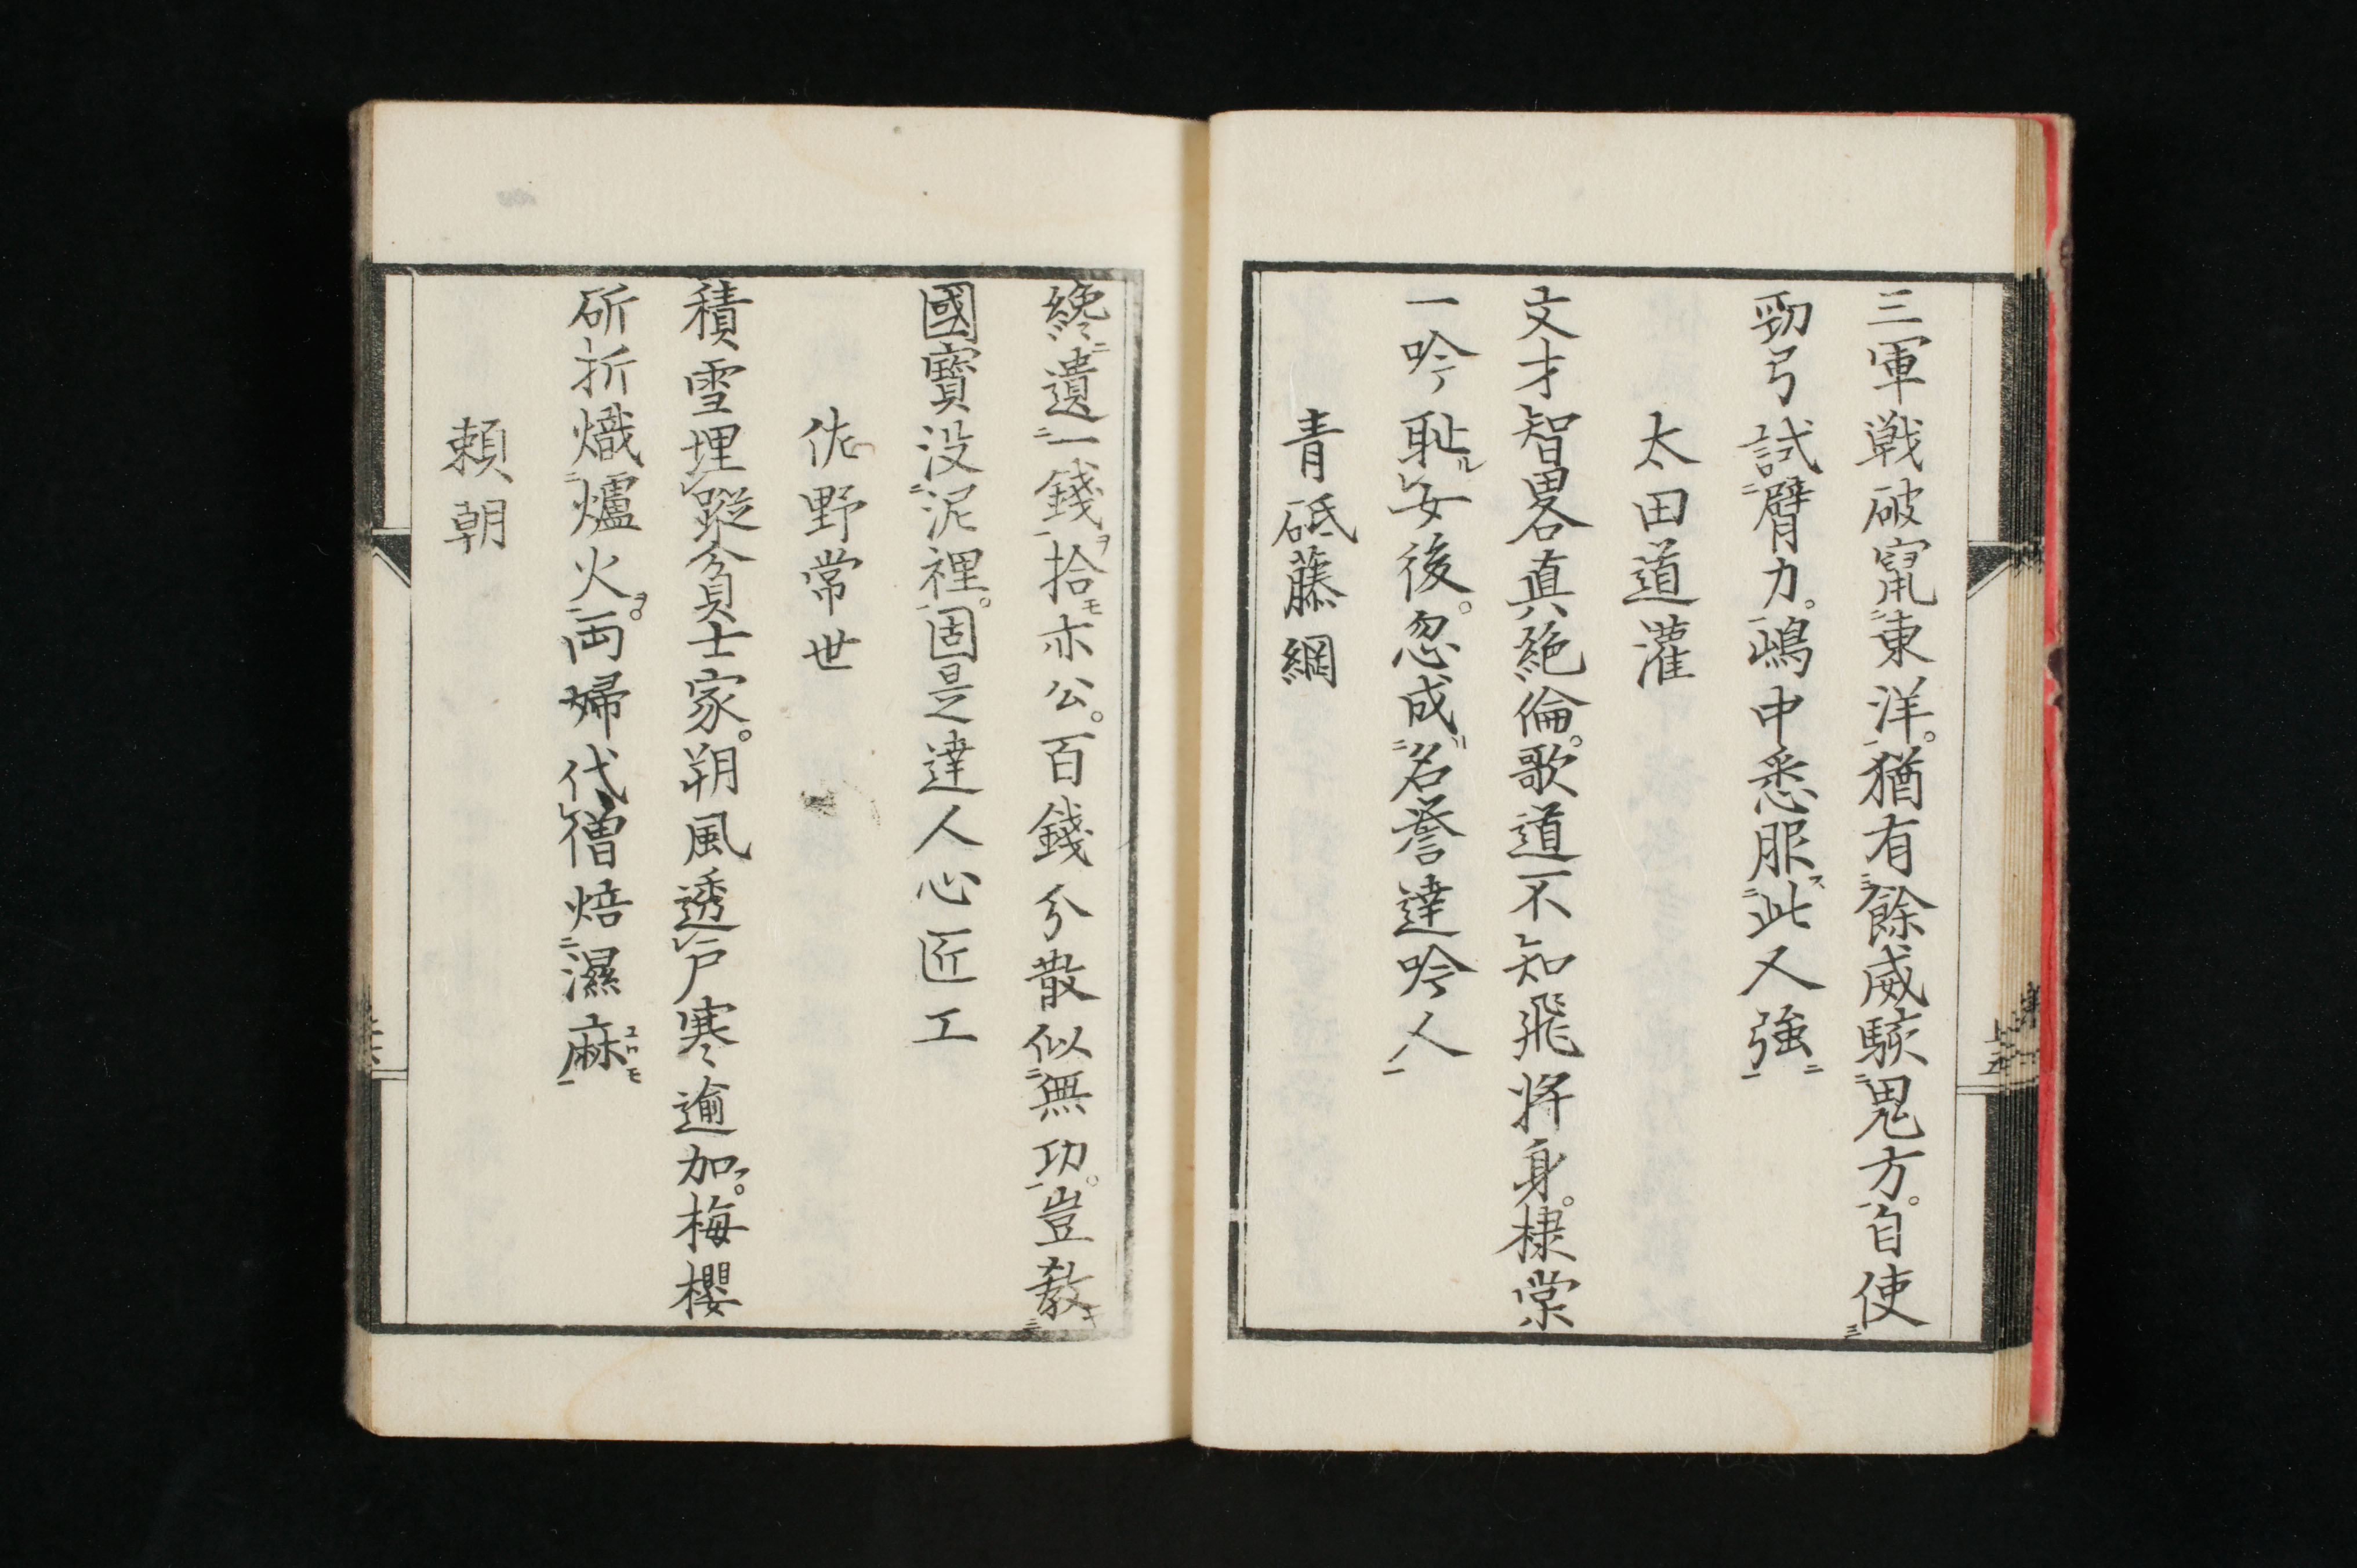 三軍戦破竄東洋。猶有餘威駭鬼方。自使
勁弓試臂力。嶋中悉服此又強
太田道灌
文才智畧真絶倫。歌道不知飛将身。棣棠
一吟恥女後。忽成名誉達吟人
青砥藤綱
纔遺一錢拾亦公。百錢分散似無功。豈教
國寳没泥裡。固是達人心匠工
佐野常世
積雪埋蹤貧士家。朔風透戸寒逾加。梅櫻
斫折熾爐火。両婦代僧焙濕麻
頼朝